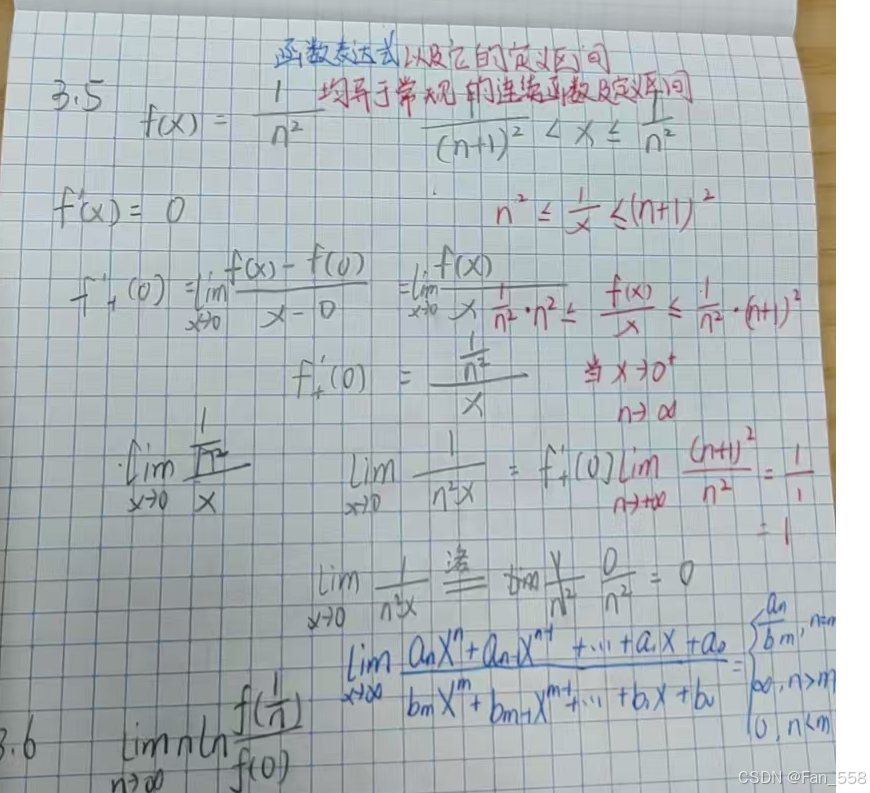 函数表达式以及它的定义区间
均异于常规的连续函数及定义区间
3.5 f(x) = 1/n² 1/(n+1)² < x ≤ 1/n²
f'(x) = 0 n² ≤ 1/x ≤ (n+1)²
f'₊(0) = lim x→0 (f(x) - f(0))/(x - 0) = lim x→0 f(x)/x 1/n² · n² ≤ f(x)/x ≤ 1/n² · (n+1)²
f'₊(0) = (1/n²)/x 当 x→0⁺
n→∞
lim x→0 (1/n²)/x lim x→0 1/(n²x) = f'₊(0) lim n→+∞ (n+1)²/n² = 1/1
= 1
lim x→0 1/(n²x) 洛 0/n² = 0
lim x→∞ (aₙxⁿ + aₙ₋₁xⁿ⁻¹ + ... + a₁x + a₀)/(bₘxᵐ + bₘ₋₁xᵐ⁻¹ + ... + b₁x + b₀) = { aₙ/bₘ, n=m
∞, n>m
0, n<m
3.6 lim n→∞ n ln f(1/n)/f(0)
CSDN @Fan_558